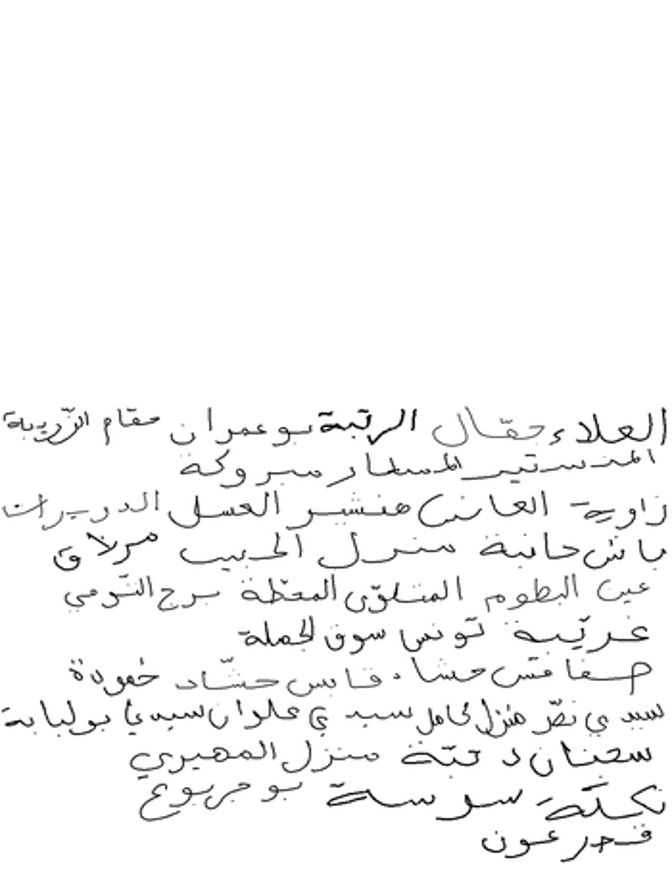 العلاء حفّال الرتبة بوعمران مقام الزّريبة
المنستير المسمار مبروكة
زاوية العانس هنشير العسل الدويرات
باش حانبة منزل الحبيب مرلاق
عين البطوم المتلوّي المحطّة برج التّومي
غريّبة تونس سوق الجملة
صفاقس حشاد قابس حشّاد خمودة
سيدي نصر منزل كامل سيدي علوان سيدي بولبابة
سجنان دخّة منزل المهيري
تكلّة سوسة بومربوع
فج